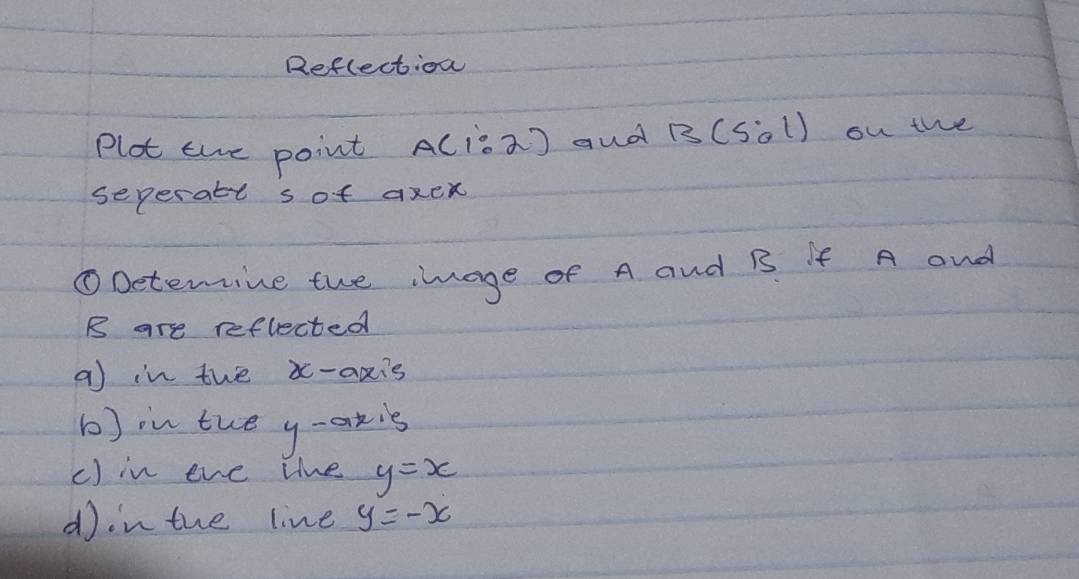 Reflection
Plot the point A(1;2) and B(5;1) on the
seperate s of axex
① Determine the image of A and B if A and
B are reflected
a) in the x-axis
b) in the y-axis
c) in the line y=x
d) in the line y=-x